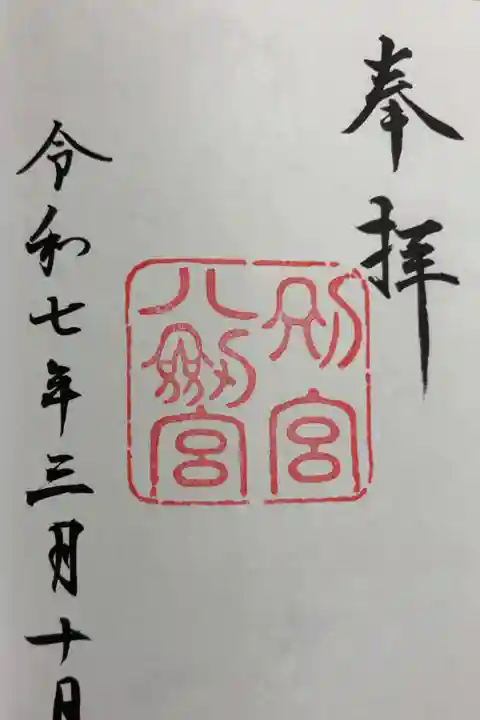 奉拝
別宮
八劔宮
令和七年三月十日